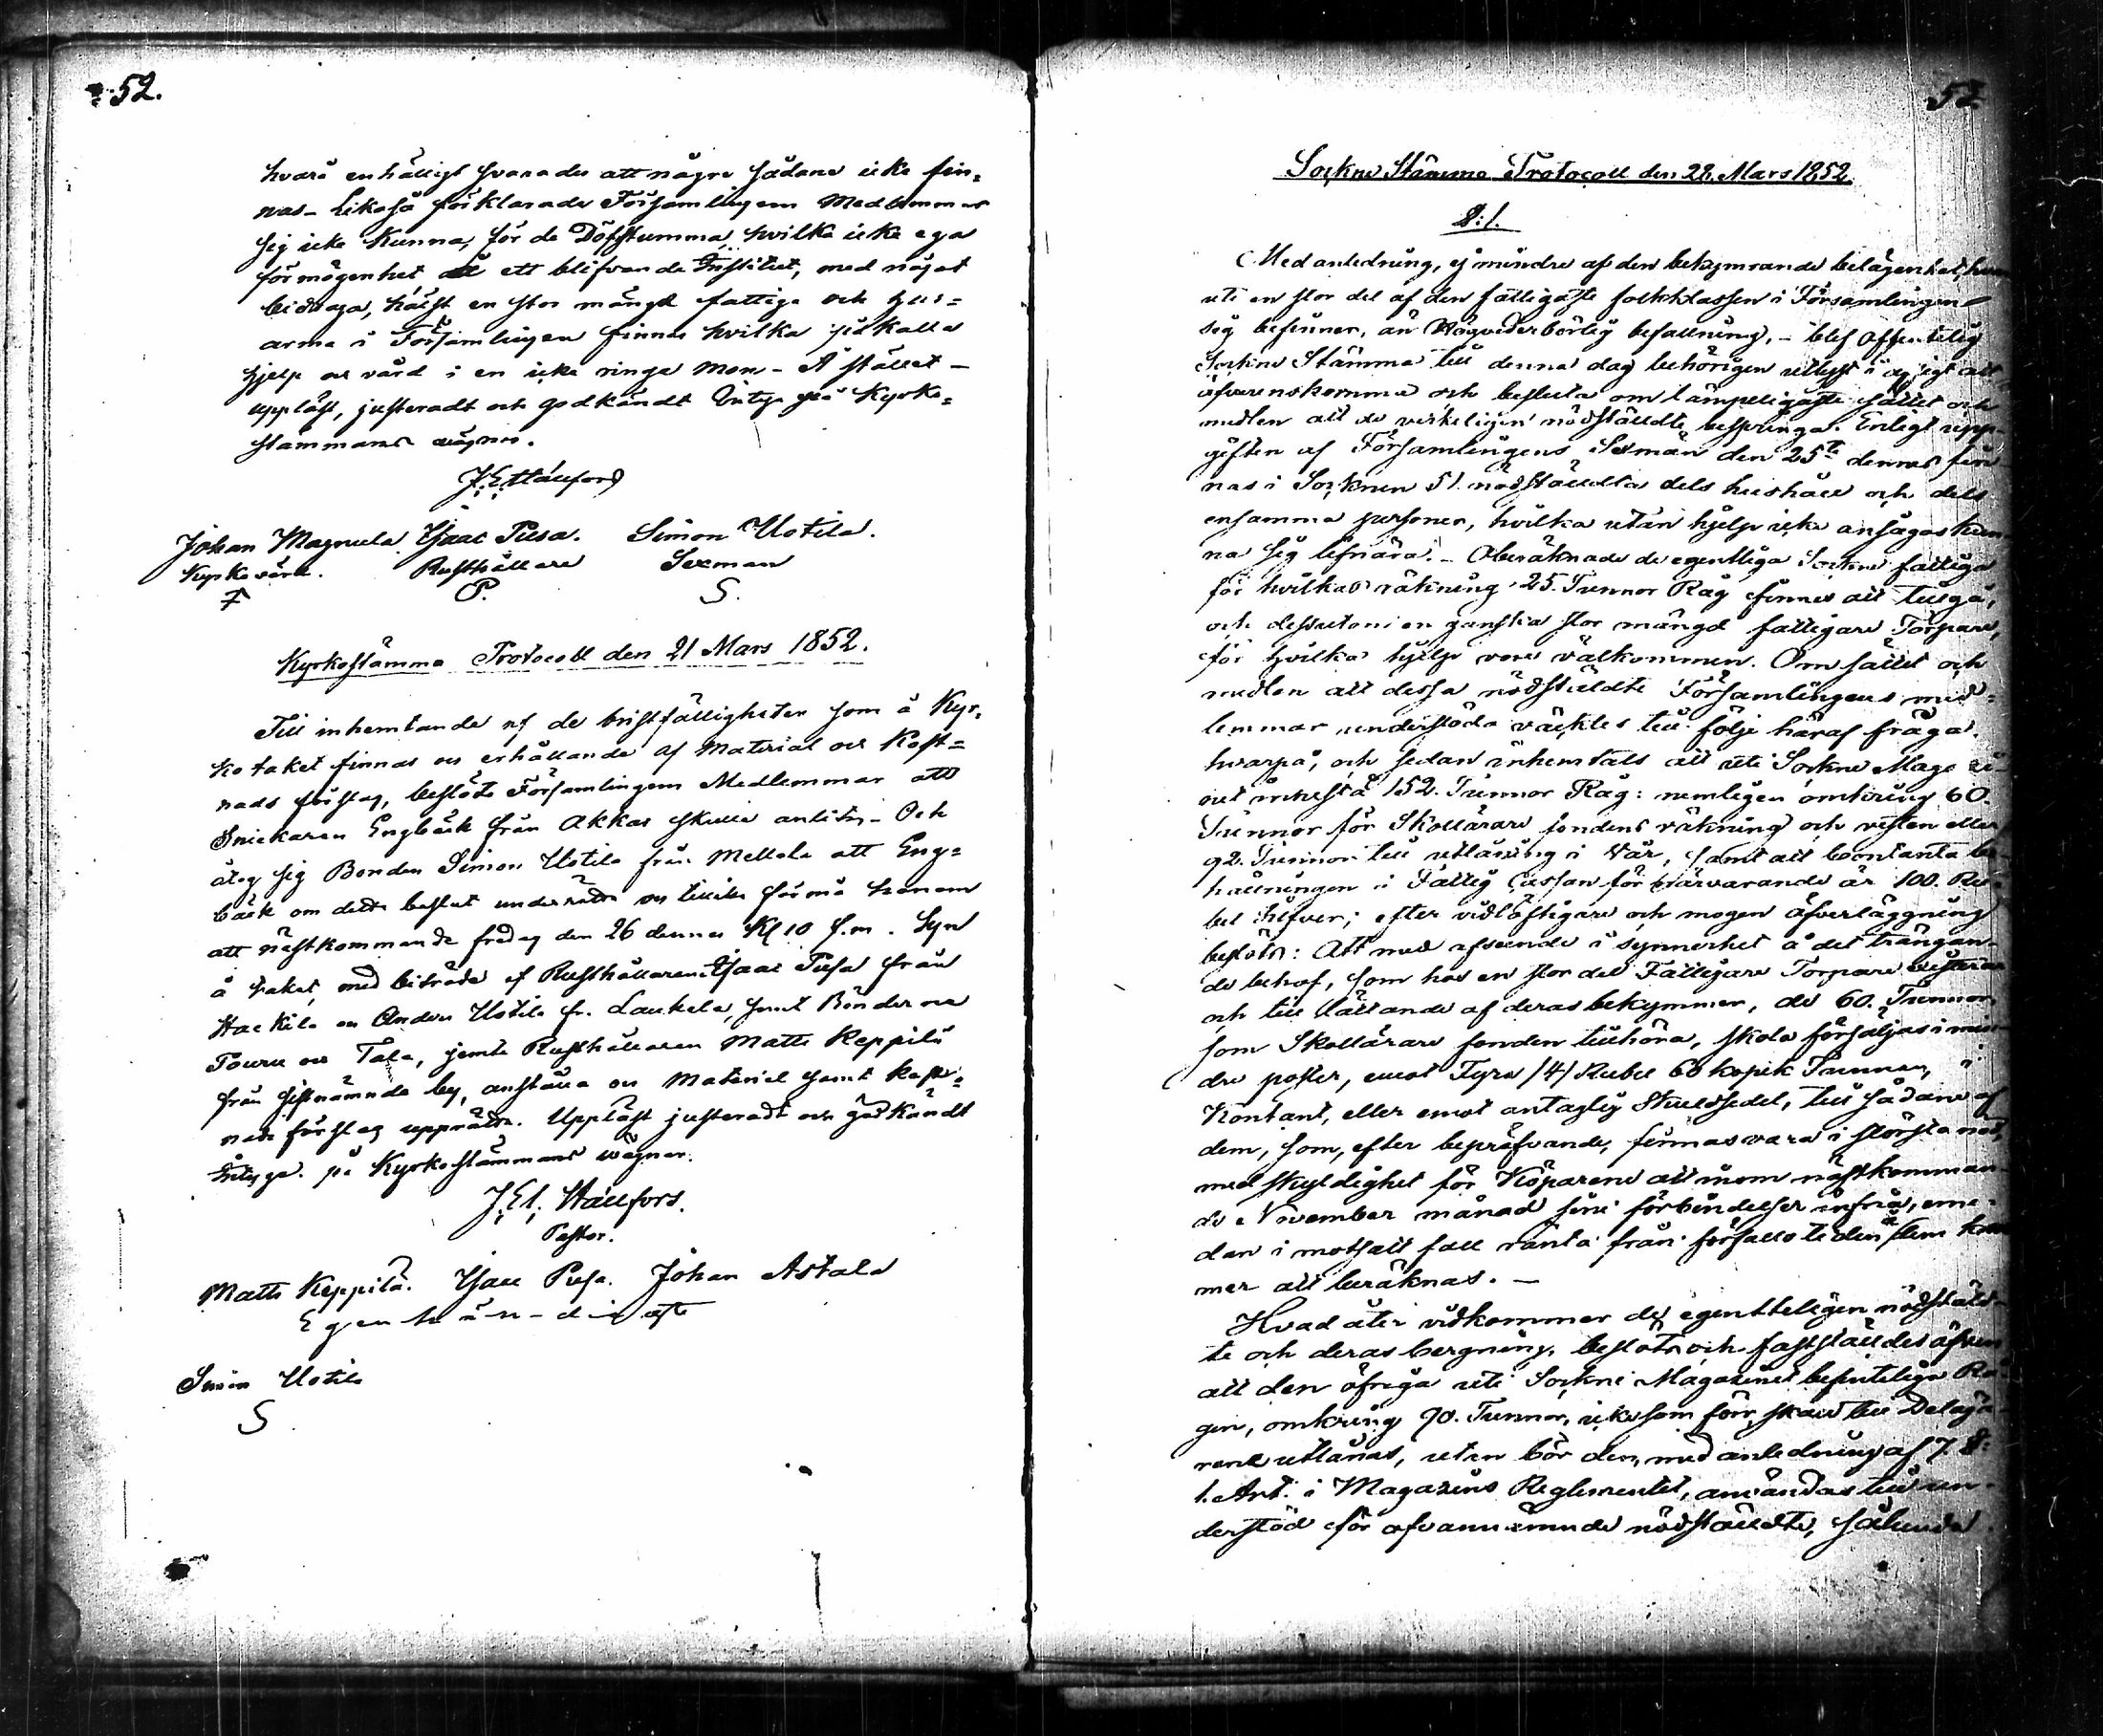 52.
hvarå enhälligt svarades att några sådane icke fin=
nas – Likaså förklarade Församlingens Medlemmar
sig icke kunna, för de Döfstumma, hvilka icke ega
förmögenhet ett blifvande Institut, med något
bidraga, hälst en stor mängd fattiga och hus=
arma i Församlingen finnas hvilka påkalla
hjelp och vård i en icke ringa mon – À stället –
uppläst, justeradt och godkändt Intyga på Kyrko=
stämmans vägnar.
J. E. Hällfors
Johan Magnula Isaac Pusa. Simon Uotila.
Kyrkovärd. Rusthållare Sexman
P. S.
Kyrkostämma Protocoll den 21 Mars 1852.
Till inhemtande af de bristfälligheter som å Kyr=
kotaket finnas och erhållande af Material och Kost=
nads förslag, beslöto Församlingens Medlemmar att
Snickaren Engbäck från Akkas skulle anlitas – Och
åtog sig Bonden Simon Uotila från Mellola att Eng=
bäck om detta beslut underrätta och tillika förmå honom
att nästkommande fredag den 26 dennes Kl 10 f.m. Syn
å taket, med biträde af Rusthållaren Isaac Pusa från
Hackila och Anders Uotila fr. Laukela, samt Bönderna
Touru och Tala, jemte Rusthållaren Matts Keppilä
från sistnämnda by, anställa och Material samt kost=
nads förslag upprätta. Uppläst justeradt och godkändt
Intyga på Kyrkostämmans wägnar.
J. E. Hällfors.
Pastor.
Matts Keppilä. Isaac Pusa. Johan Astala
Egenhändigt
Simon Uotila
S
Sockne Stämma Protocoll den 28 Mars 1852.
§:1.
Med anledning, ej mindre af den bekymrande belägenhet,
uti en stor del af den fattigaste folkklassen i Församlingen
sig befinner, än Högvederbörlig befallning, – blef offentelig
Sockne Stämma till denna dag behörigen utlyst i afsigt att
öfverenskomma och besluta om lämpeligaste sättet och
medlen att de verkeligen nödställdte bespringa. Enligt upp=
giften af Församlingens Sexmän den 25te dennes fin=
nas i Socknen 51 nödställdta dels hushåll och dels
ensamma personer, hvilka utan hjelp icke ansågos kun
na sig lifnära. – Oberäknade de egentliga Sockne fattiga
för hvilkas räkning 25. Tunnor Råg finnes att tillgå,
och dessutom en ganska stor mängd fattigare Torpare,
för hvilka hjelp vore välkommen. Om sättet och
medlen att dessa nödställdte Församlingens med=
lemmar understöda väcktes till följe häraf fråga.
hvarpå, och sedan inhemtats att uti Sockne Maga zi
net innestå 152. Tunnor Råg: nemligen omkring 60.
Tunnor för Skollärare fondens räkning och resten eller
92. Tunnor till utlåning i Vår, samt att contanta be=
hållningen i Fattig Cassan för närvarande är 100. Ru=
bel Silfver; efter vidlöftigare och mogen öfverläggning
beslöts: Att med afseende i synnerhet å det trängan=
de behof, som hos en stor del Fattigare Torpare
och till lättande af deras bekymmer, de 60. Tunnor
som Skollärare fonden tillhöra, skola försäljas i min
dre poster, emot Fyra /4/ Rubel 60 kopek Tunnan, i
Kontant, eller emot antaglig Skuldsedel, till sådane af
dem, som, efter bepröfvande, finnas vara i största nöd,
med skyldighet för Köparene att inom nästkomman=
de November månad sine förbindelser infria, eme=
dan i motsatt fall ränta från förfallo tiden dem kom
mer att beräknas. –
Hvad åter vidkommer de egentteligen nödställd=
te och deras bergning, beslöts och fastställdes äfven
att den öfriga uti Sockne Magazinet befinteliga Rå=
gen, omkring 90. Tunnor, icke som förr skall till Delega
rene utlånas, utan bör den, med anledning af 7. §:
1. Art: i Magazins Reglementet, användas till un=
derstöd för ofvannämnde nödställdte, sålunda